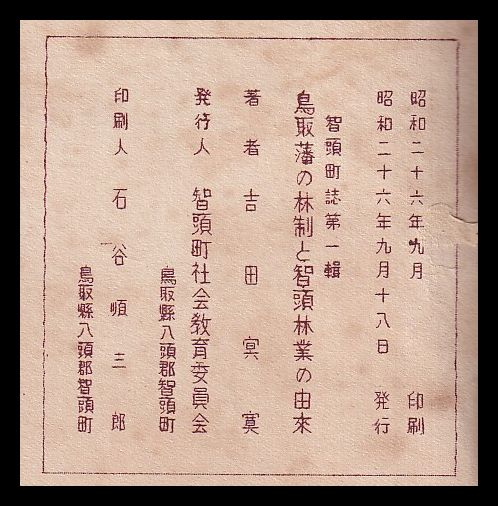 昭和二十六年九月　印刷
昭和二十六年九月十八日　発行
智頭町誌第一輯
鳥取藩の林制と智頭林業の由來
著者　吉田冥寞
発行人　智頭町社会教育委員会
鳥取縣八頭郡智頭町
印刷人　石谷恒三郎
鳥取縣八頭郡智頭町